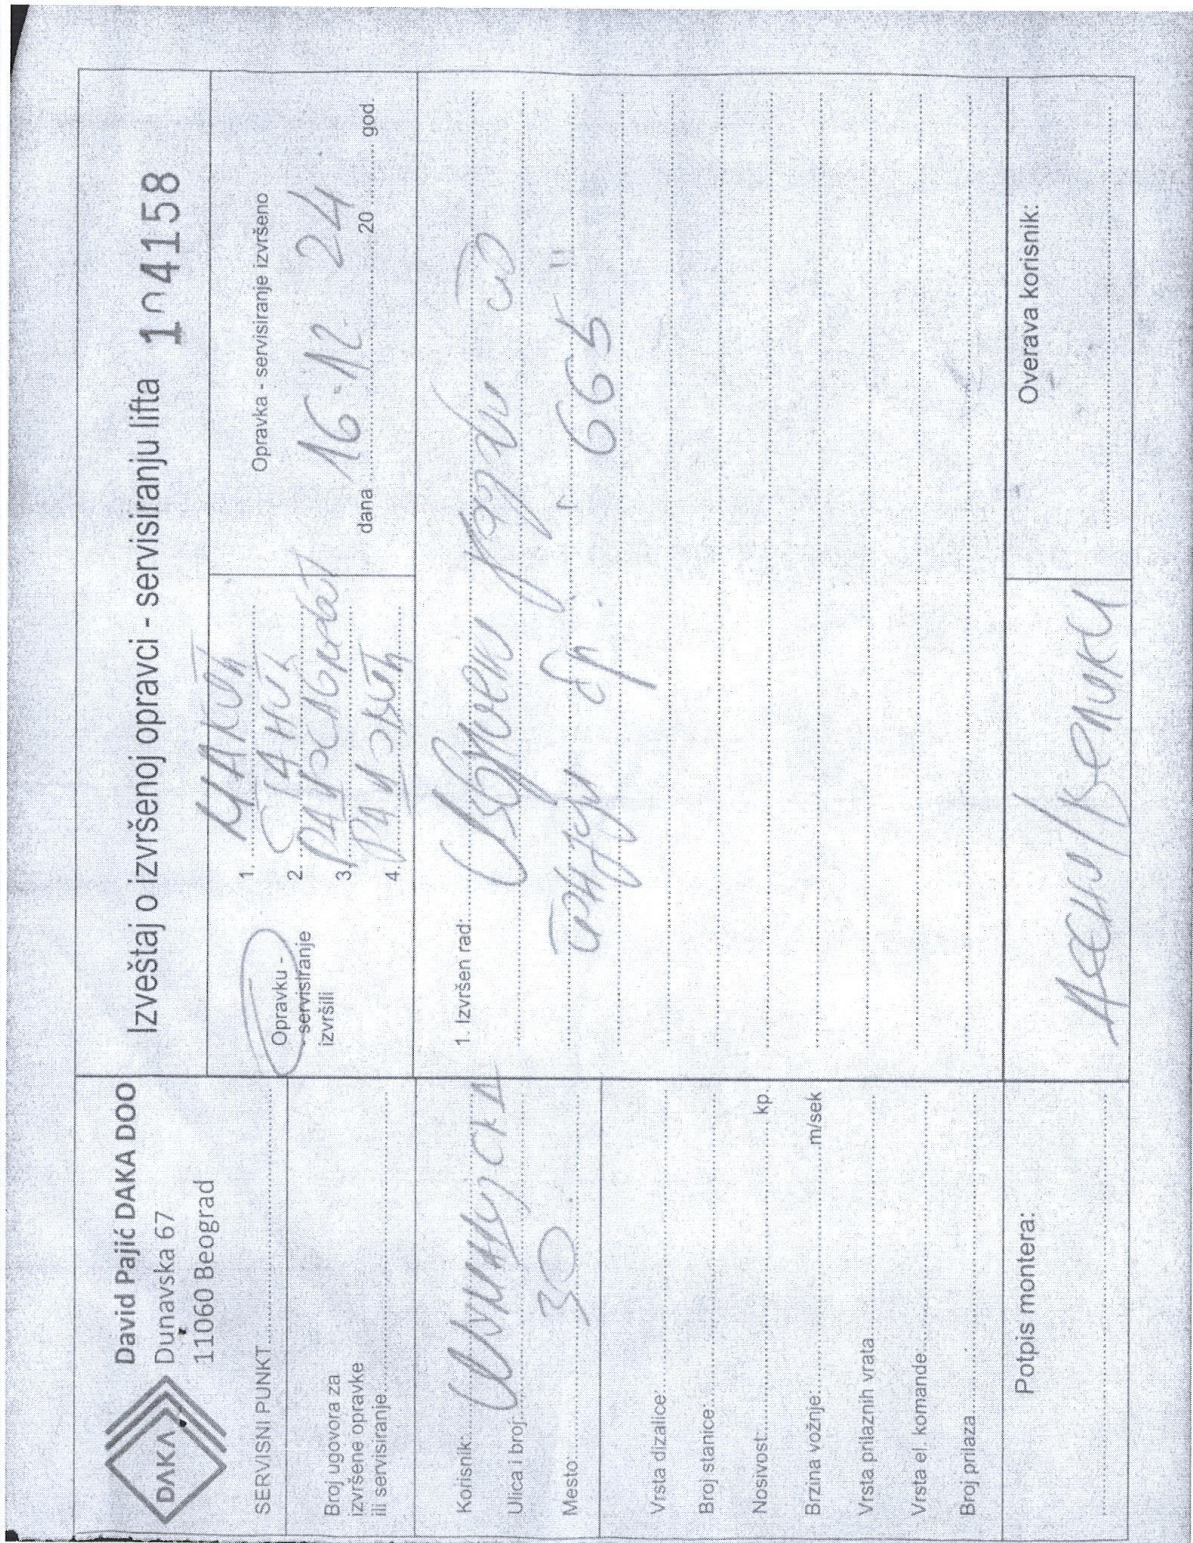 DAKA
David Pajić DAKA DOO
Dunavska 67
11060 Beograd
Izveštaj o izvršenoj opravci - servisiranju lifta 104158
SERVISNI PUNKT
Broj ugovora za
izvršene opravke
ili servisiranje
Opravku -
- servisiranje
izvršili
1.
2.
3.
4.
Opravka - servisiranje izvršeno
dana 16.12. 20 24 god.
Korisnik:
Ulica i broj:
30
Mesto:
Vrsta dizalice:
Broj stanice:
Nosivost: kp.
Brzina vožnje: m/sek
Vrsta prilaznih vrata
Vrsta el. komande
Broj prilaza
1. Izvršen rad: Извршени радови по
бр. 665
Potpis montera:
Десни/Велики
Overava korisnik: